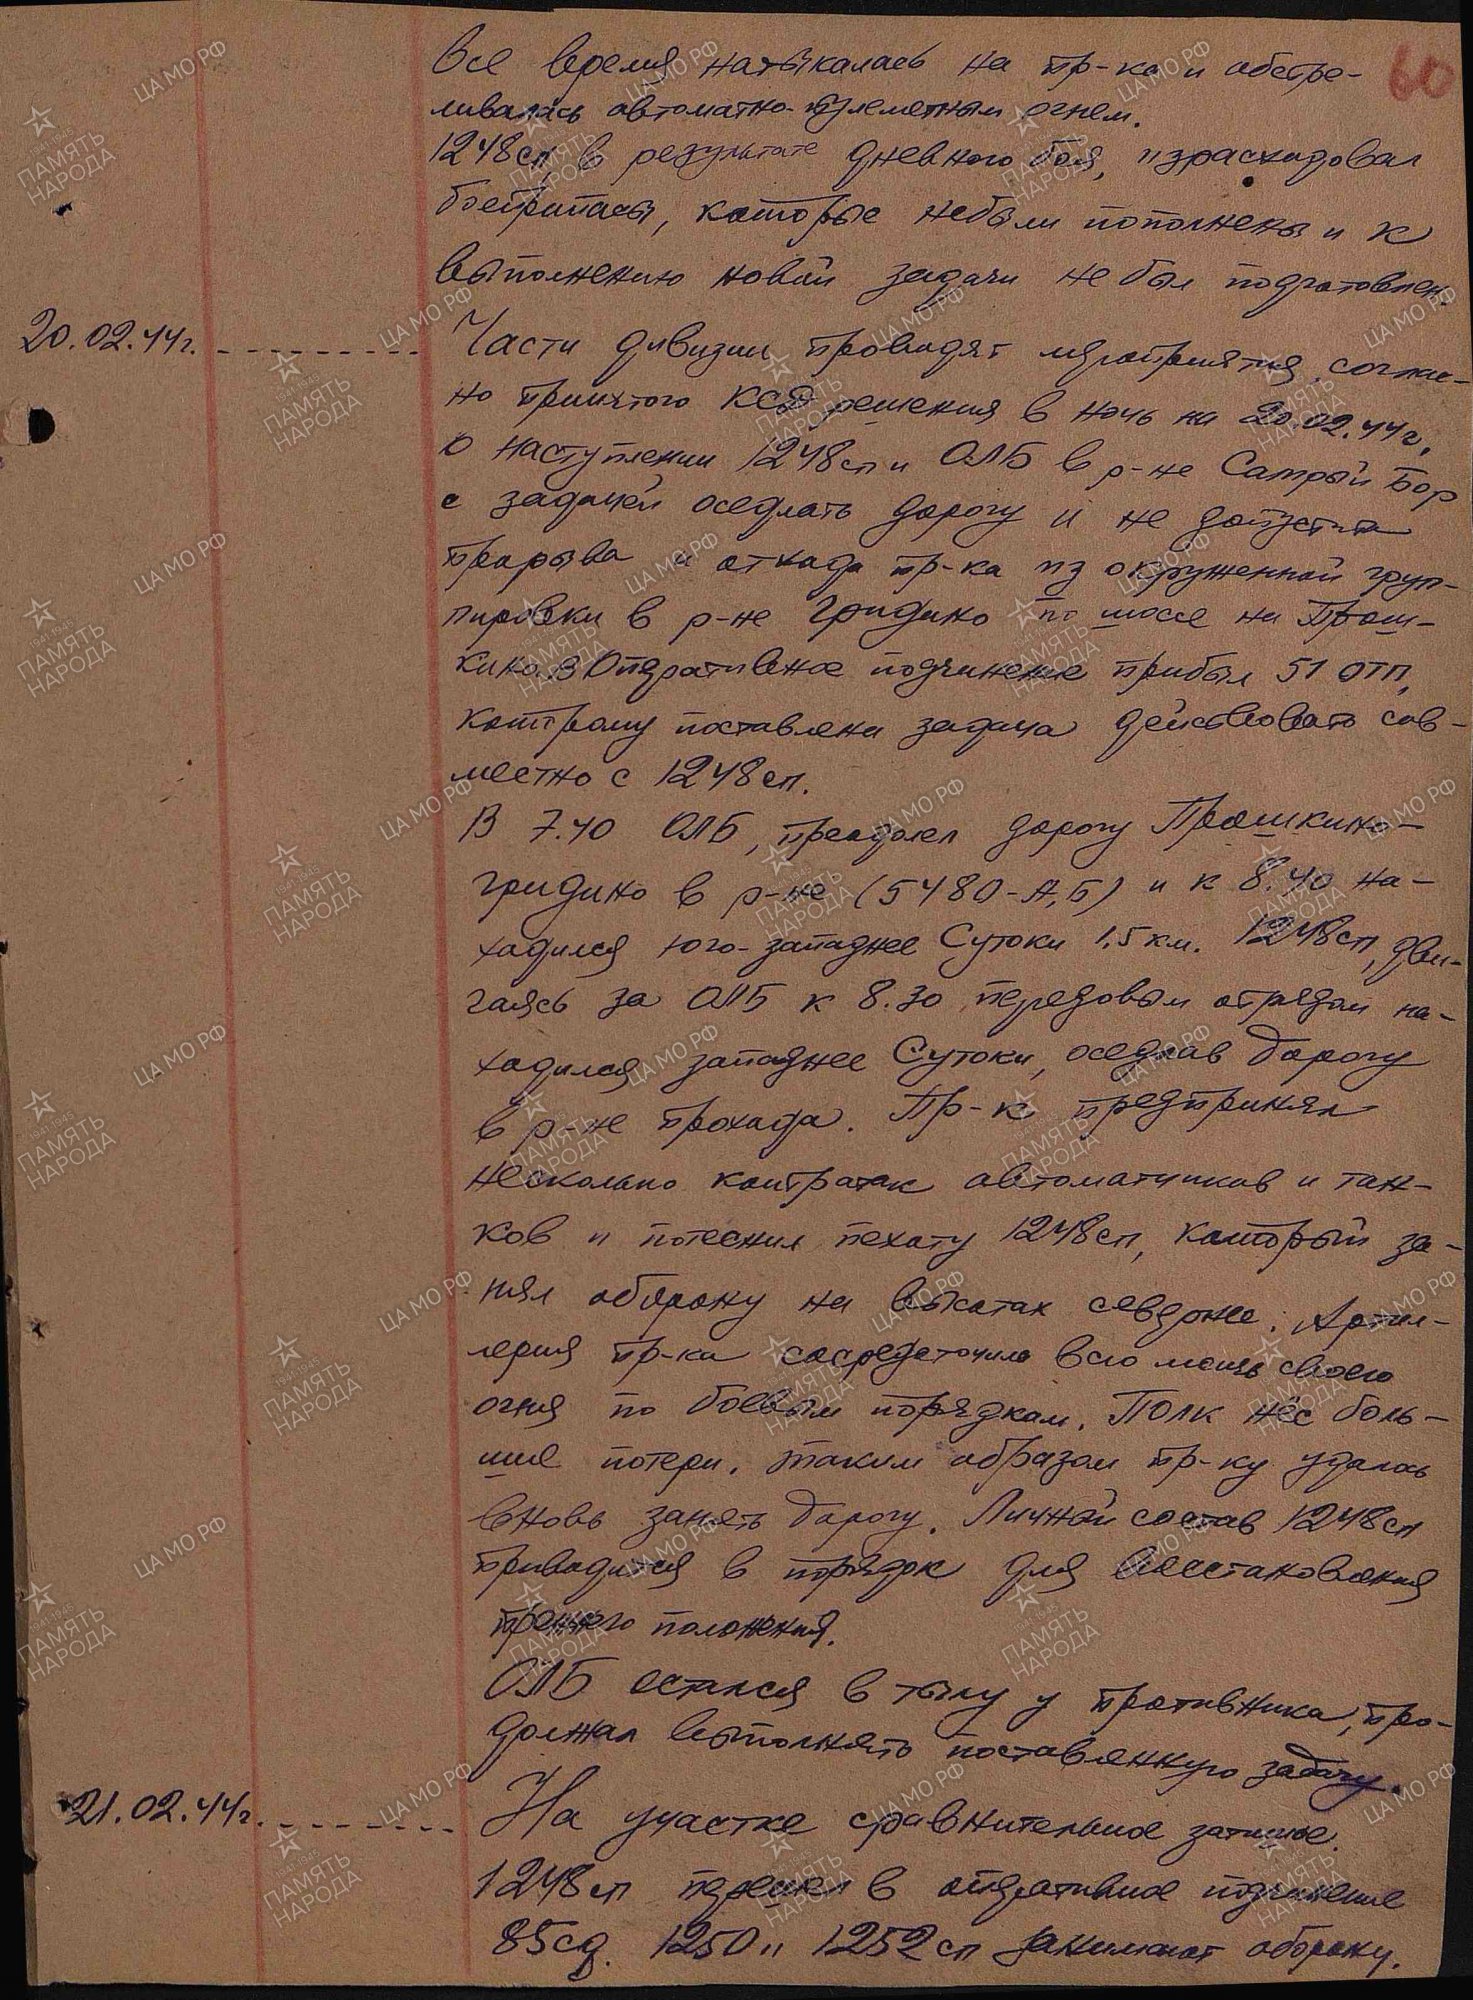 60
все время натыкалась на пр-ка и обстре-
ливалась автоматно-пулеметным огнем.
1248сп, в результате дневного боя, израсходовал
боеприпасы, которые небыли пополнены и к
выполнению новой задачи не был подготовлен.
20.02.44г. Части дивизии проводят мероприятия соглас-
но принятого КСД решения в ночь на 20.02.44г.
о наступлении 1248сп и ОЛБ в р-не Старый Бор
с задачей оседлать дорогу и не допустить
прорыва и отхода пр-ка из окруженной груп-
пировки в р-не Гридино по шоссе на Прош-
кино. В Оперативное подчинение прибыл 51 ОТП,
которому поставлена задача действовать сов-
местно с 1248сп.
В 7.40 ОЛБ, преодолел дорогу Прошкино-
Гридино в р-не (5480-А,Б) и к 8.40 на-
ходился юго-западнее Сутоки 1.5км. 1248сп, дви-
гаясь за ОЛБ к 8.30 передовым отрядом на-
ходился западнее Сутоки, оседлав дорогу
в р-не прохода. Пр-к предпринял
несколько контратак автоматчиков и тан-
ков и потеснил пехоту 1248сп, который за-
нял оборону на высотах севернее. Артил-
лерия пр-ка сосредоточила всю мощь своего
огня по боевым порядкам. Полк нёс боль-
шие потери. Таким образом пр-ку удалось
вновь занять дорогу. Личный состав 1248сп
приводится в порядок для восстановления
прежнего положения.
ОЛБ остался в тылу у противника, про-
должал выполнять поставленную задачу.
21.02.44г. На участке сравнительное затишье.
1248сп перешел в оперативное подчинение
85сд. 1250 и 1252сп занимают оборону.
ЦА МО РФ
1941-1945
ПАМЯТЬ
НАРОДА